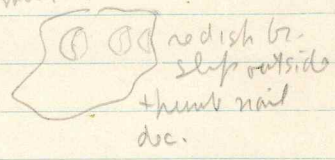 redish br.
slip outside
thumb nail
dec.